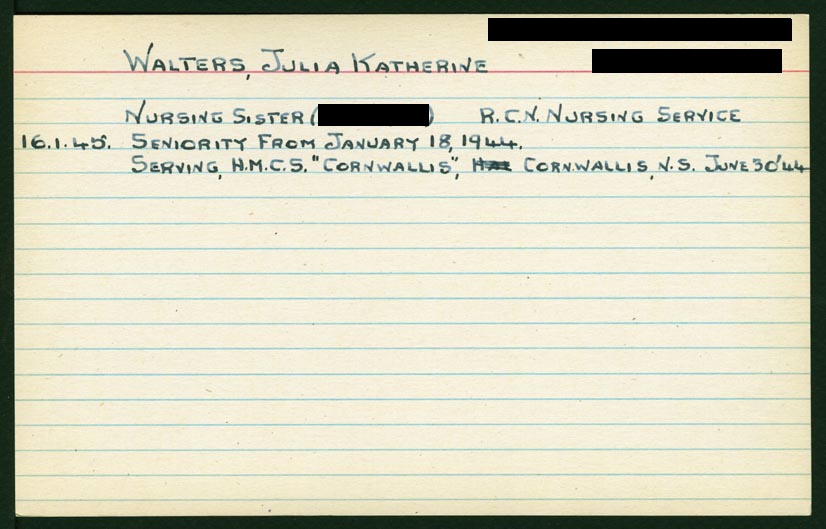 WALTERS, JULIA KATHERINE
NURSING SISTER ( ) R.C.N. NURSING SERVICE
16.1.45. SENIORITY FROM JANUARY 18, 1944.
SERVING, H.M.C.S. "CORNWALLIS", CORNWALLIS, N.S. JUNE 30'44